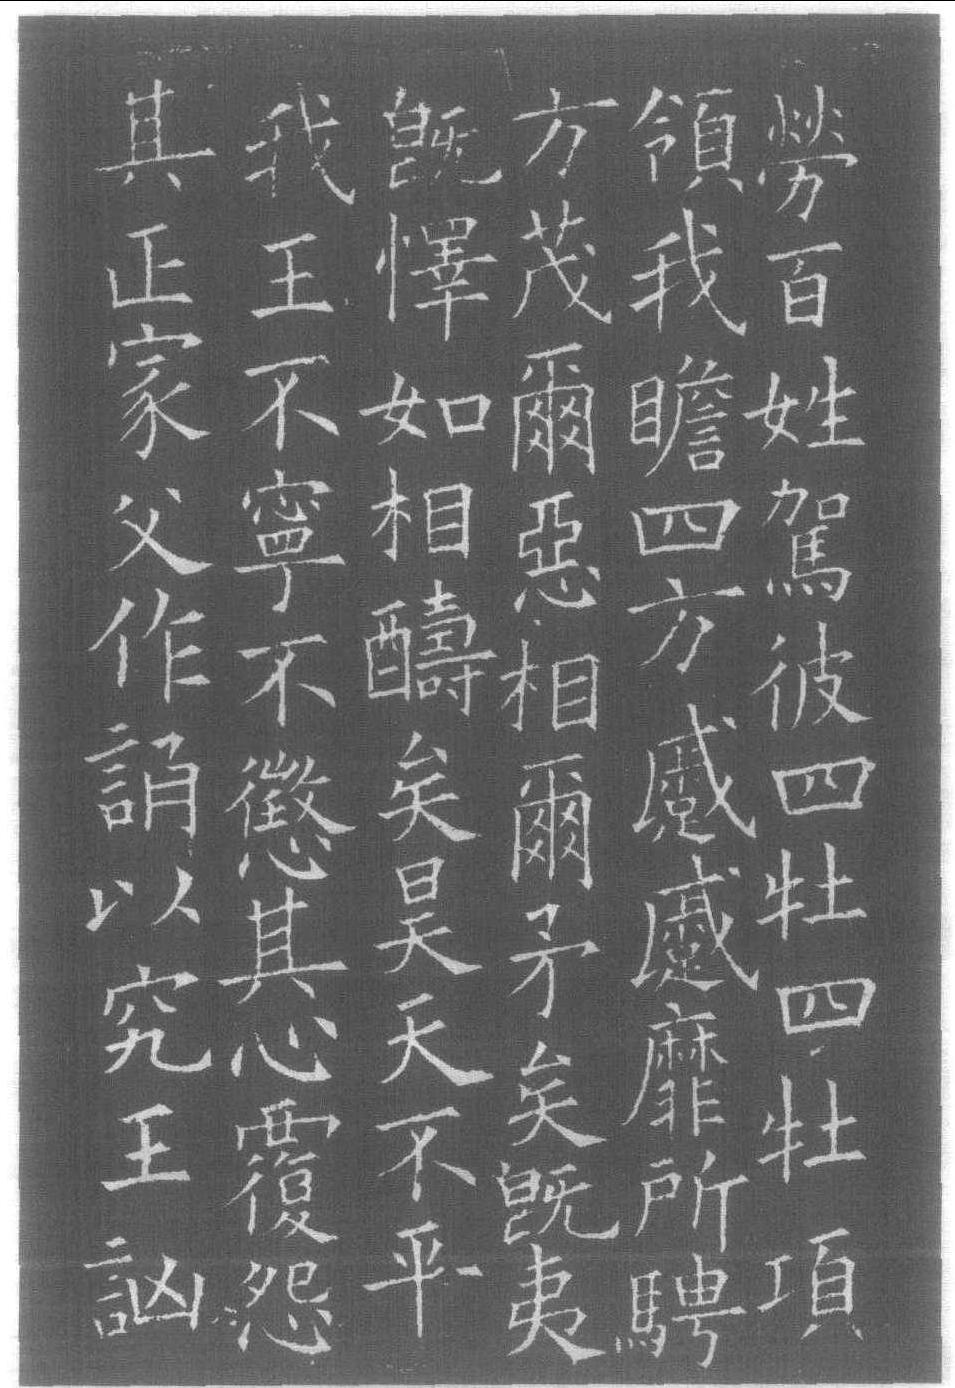 勞百姓駕彼四牡四牡項
領我瞻四方蹙蹙靡所騁
方茂爾惡相爾矛矣旣夷
旣懌如相醻矣昊天不平
我王不寧不懲其心覆怨
其正家父作誦以究王訩